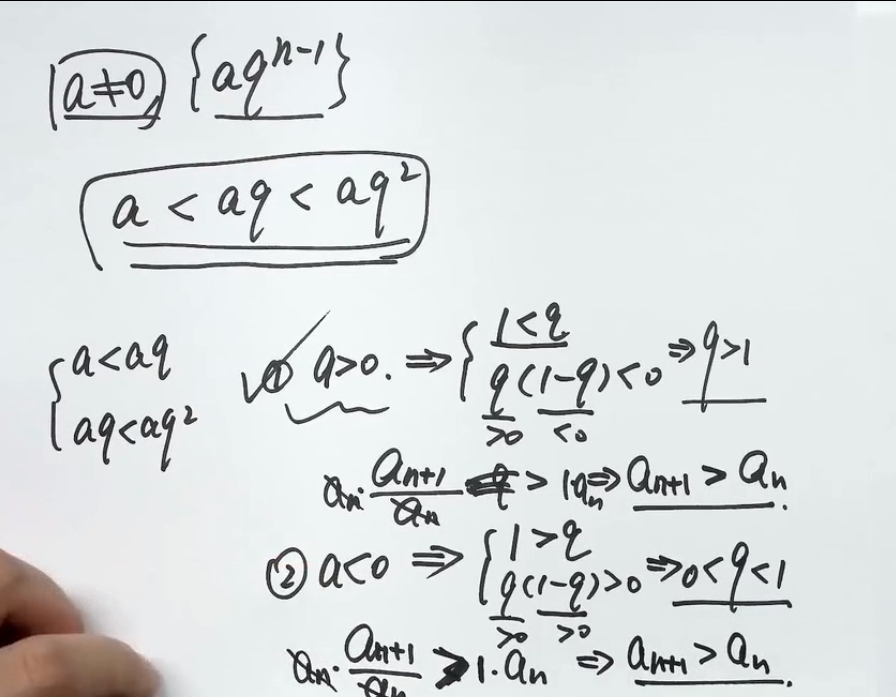 a≠0, {aqⁿ⁻¹}
a < aq < aq²
{a<aq
aq<aq²
① a>0. ⇒ {1<q
q(1-q)<0 ⇒ q>1
>0 <0
aₙ·aₙ₊₁/aₙ > 1·aₙ ⇒ aₙ₊₁ > aₙ.
② a<0 ⇒ {1>q
q(1-q)>0 ⇒ 0<q<1
>0 >0
aₙ·aₙ₊₁/aₙ > 1·aₙ ⇒ aₙ₊₁ > aₙ.